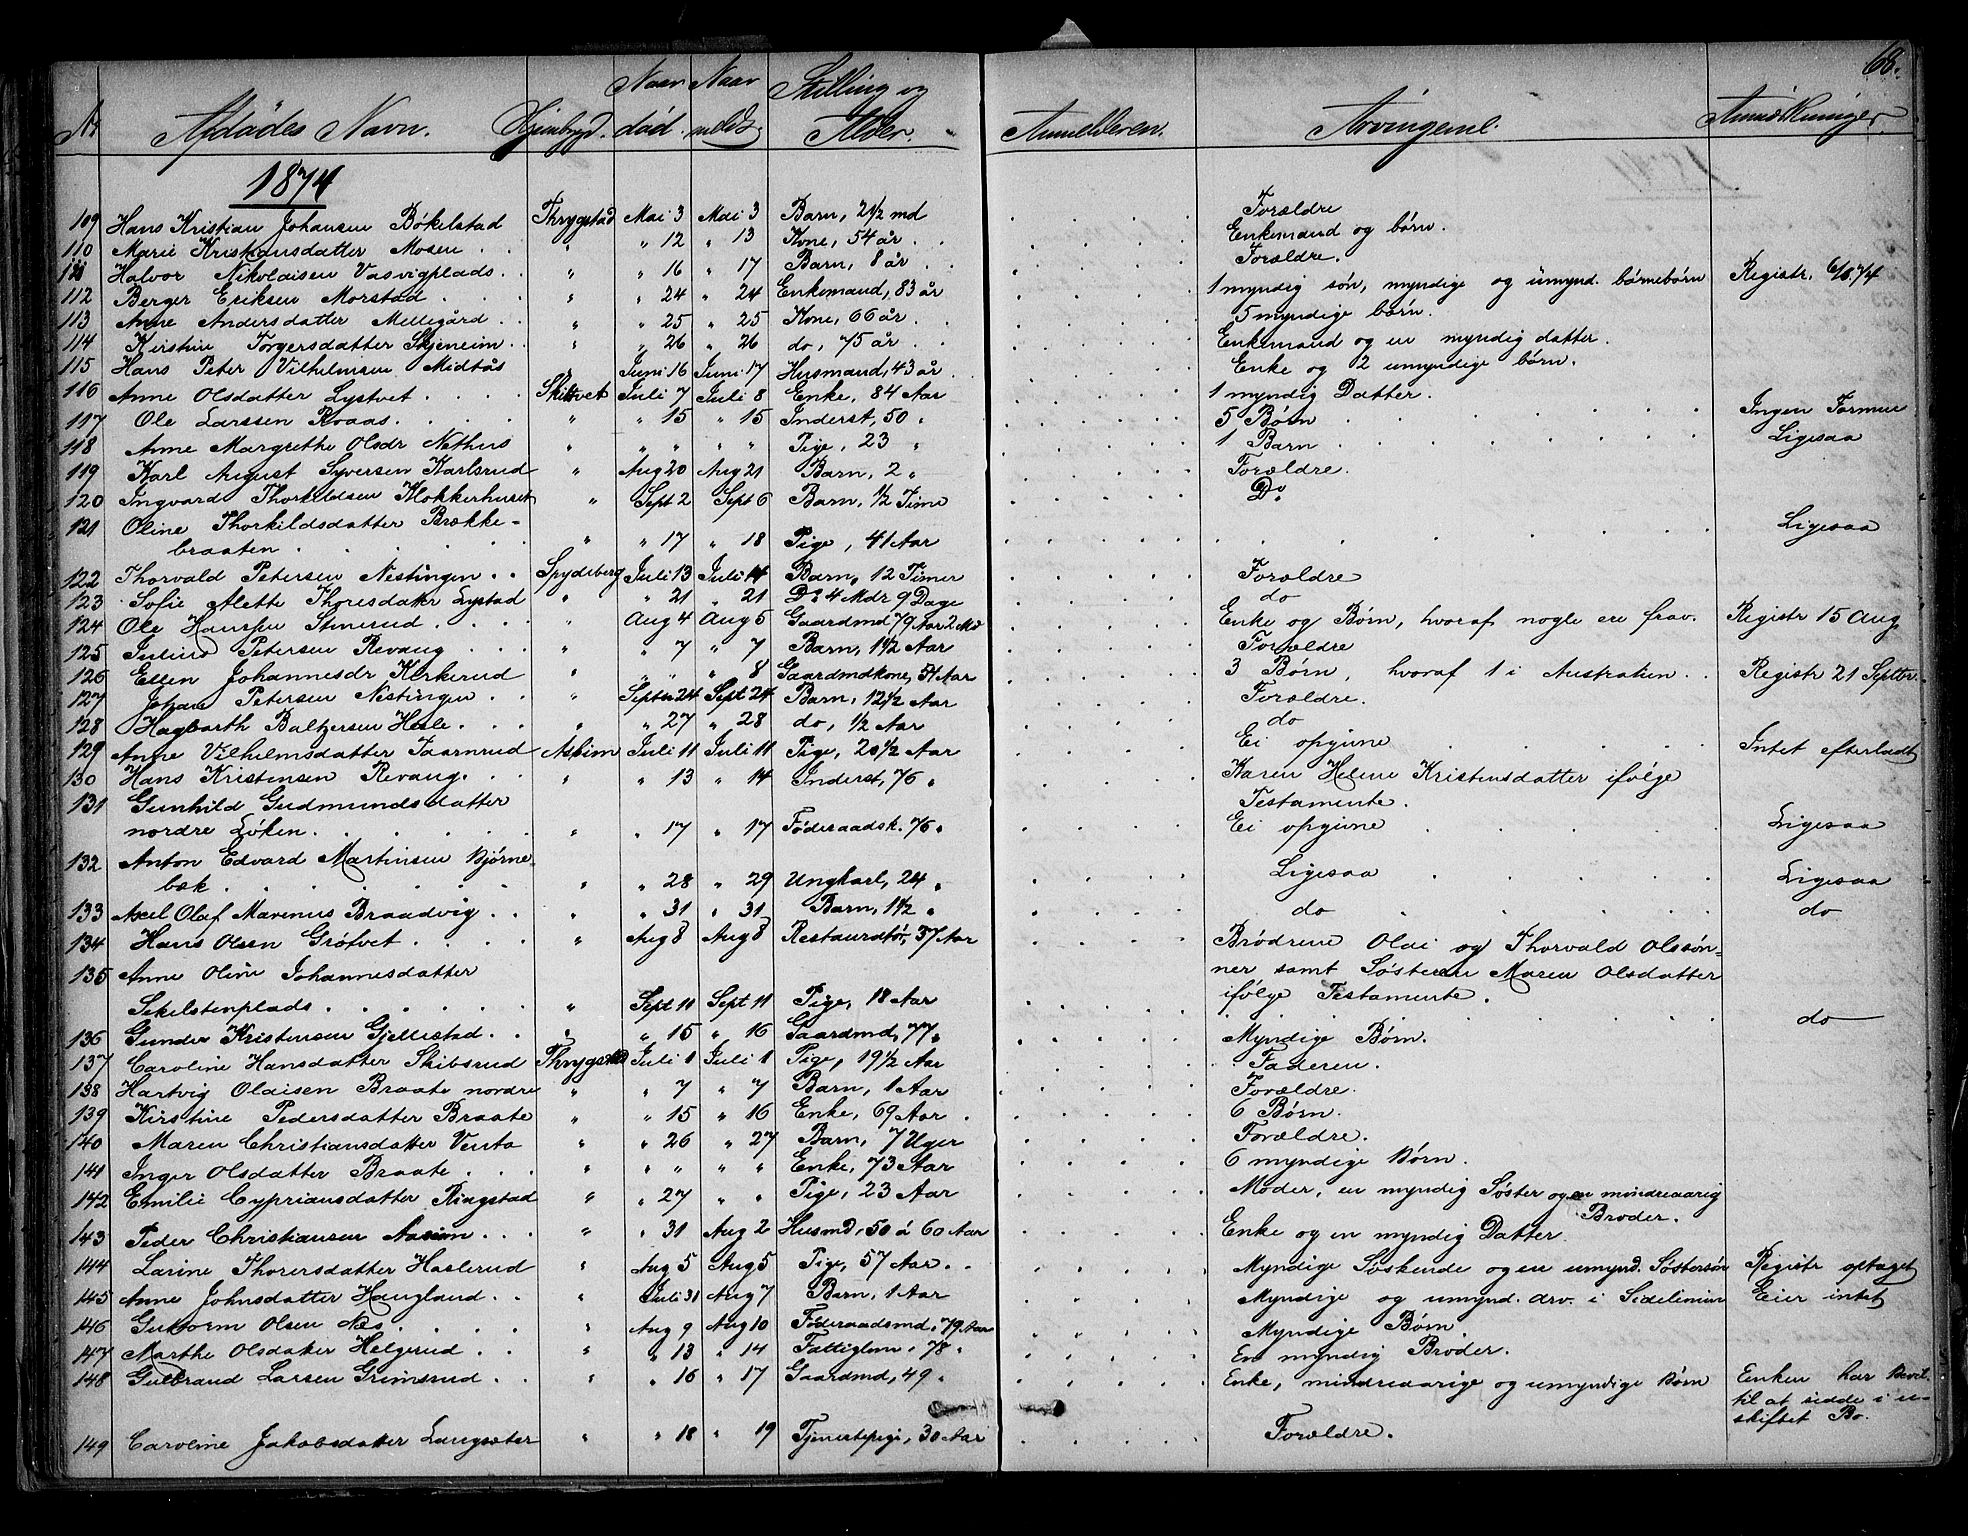 68.
No Afdødes Navn. Hjembygd. Naar død. Naar meldt. Stilling og Alder. Anmelderen. Arvingerne. Anmærkninger.
1874
109 Hans Kristian Johansen Bökelstad Thrygstad Mai 3 Mai 3 Barn, 2 1/2 md Forældre
110 Marie Kristiansdatter Mosen " " 12 " 13 Kone, 54 år Enkemand og börn.
111 Halvor Nikolaisen Vasvigplads " " 16 " 17 Barn, 8 år Forældre.
112 Berger Eriksen Morstad " " 24 " 24 Enkemand, 83 år 1 myndig sön, myndige og umynd. börnebörn Registr. 6/8.74
113 Anne Andersdatter Mellegård " " 25 " 25 Kone, 66 år 5 myndige börn.
114 Kirstine Torgersdatter Skjeneim " " 26 " 26 do, 75 år Enkemand og en myndig datter.
115 Hans Peter Vilhelmsen Midtås " Juni 16 Juni 17 Husmand, 43 år Enke og 2 umyndige börn.
116 Anne Olsdatter Lystvet Skiptvet Juli 7 Juli 8 Enke, 84 Aar 1 myndig Datter.
117 Ole Larssen Roaas " " 15 " 15 Inderst, 50 " 5 Børn Ingen Formue
118 Anne Margrethe Olsdr Nethus " " " " " Pige, 23 " 1 Barn Ligesaa
119 Karl August Syversen Karlsrud " Aug 20 Aug 21 Barn, 2 " Forældre.
120 Ingvarda Thorkildsen Klokkerhuset " Sept 2 Sept 6 Barn, 1/2 Time Do
121 Oline Thorkildsdatter Brække-
braaten " " 17 " 18 Pige, 41 Aar Ligesaa
122 Thorvald Petersen Nestingen Spydeberg Juli 13 Juli 14 Barn, 12 Timer Forældre
123 Sofie Alette Thoresdatter Lystad " " 21 " 21 Do 4 Mdr 9 Dage do
124 Ole Hanssen Stenerud " Aug 4 Aug 5 Gaardmd 79 Aar 2 Md Enke og Børn, hvoraf nogle ere frav. Registr 15 Aug
125 Julius Petersen Revaug " " 7 " 7 Barn, 1 1/2 Aar Forældre
126 Ellen Johannesdr Kirkerud " " " " 8 Gaardmdkone, 54 Aar 3 Børn, hvoraf 1 i Australien Registr 21 Septbr.
127 Johan Petersen Nestingen " Septbr 24 Sept. 24 Barn, 12 1/2 Aar Forældre.
128 Hagbarth Baltzersen Hule " " 27 " 28 do, 1/2 Aar do
129 Anne Vilhelmsdatter Taarnrud Askim Juli 11 Juli 11 Pige, 20 1/2 Aar Ei opgivne Intet efterladt
130 Hans Kristensen Revaug " " 13 " 14 Inderst, 76 " Karen Helene Kristensdatter ifølge
Testamente.
131 Gunhild Gudmundsdatter
nordre Løken " " 17 " 17 Föderaadsk. 76 " Ei opgivne Ligesaa
132 Anton Edvard Martinsen Bjørne-
bæk " " 28 " 29 Ungkarl, 24 " Ligesaa Ligesaa
133 Axel Olaf Marenus Braadvig " " 31 " 31 Barn, 1 1/2 " do do
134 Hans Olsen Grötvet " Aug 8 Aug 8 Restauratör, 37 Aar Brödrene Olai og Thorvald Olssön-
ner samt Søsteren Maren Olsdatter
ifølge Testamente.
135 Anne Oline Johannesdatter
Sekelstenplads " Sept 11 Sept 11 Pige, 18 Aar do
136 Gunder Kristensen Gjellestad " " 15 " 16 Gaardmd, 77 " Myndige Børn.
137 Caroline Hansdatter Skibsrud Thrygstad Juli 1 Juli 1 Pige, 19 1/2 Aar Faderen.
138 Hartvig Olaisen Braate nordre " " 7 " 7 Barn, 1 Aar Forældre.
139 Kirstine Pedersdatter Braate " " 15 " 16 Enke, 69 Aar 6 Børn.
140 Maren Christiansdatter Vento " " 26 " 27 Barn, 7 Uger Forældre.
141 Inger Olsdatter Braate " " " " " Enke, 73 Aar 6 myndige Børn.
142 Emilie Cypriansdatter Ringstad " " 27 " " Pige, 23 Aar Moder, en myndig Søster og en mindreaarig
Broder.
143 Peder Christiansen Aasum " " 31 Aug 2 Husmd, 50 à 60 Aar Enke og en myndig Datter.
144 Larine Thorersdatter Haslerud " Aug 5 Aug 5 Pige, 57 Aar Myndige Søskende og en umynd. Søstersøn Registr optaget
145 Anne Johnsdatter Haugland " Juli 31 Aug 7 Barn, 1 Aar Myndige og umynd. arv. i Sidelinien Eier intet
146 Guttorm Olsen Næs " Aug 9 Aug 10 Föderaadsmd, 79 Aar Myndige Børn
147 Marthe Olsdatter Helgerud " " 13 " 14 Fattiglem, 78 " En myndig Broder.
148 Gulbrand Larsen Grimsrud " " 16 " 17 Gaardmd, 49 " Enke, mindreaarige og umyndige Børn Enken har Bevil.
til at sidde i u-
skiftet Bo.
149 Caroline Jakobsdatter Langsæter " " 18 " 19 Tjenestepige, 30 Aar Forældre.